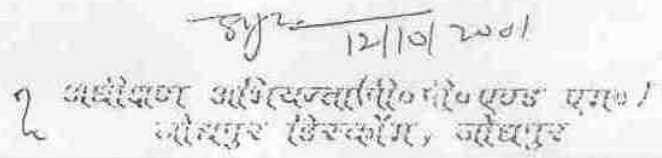 12/10/2001
अधीक्षण अभियन्ता(पी०पी०एण्ड एम०)
जोधपुर डिस्कॉम, जोधपुर